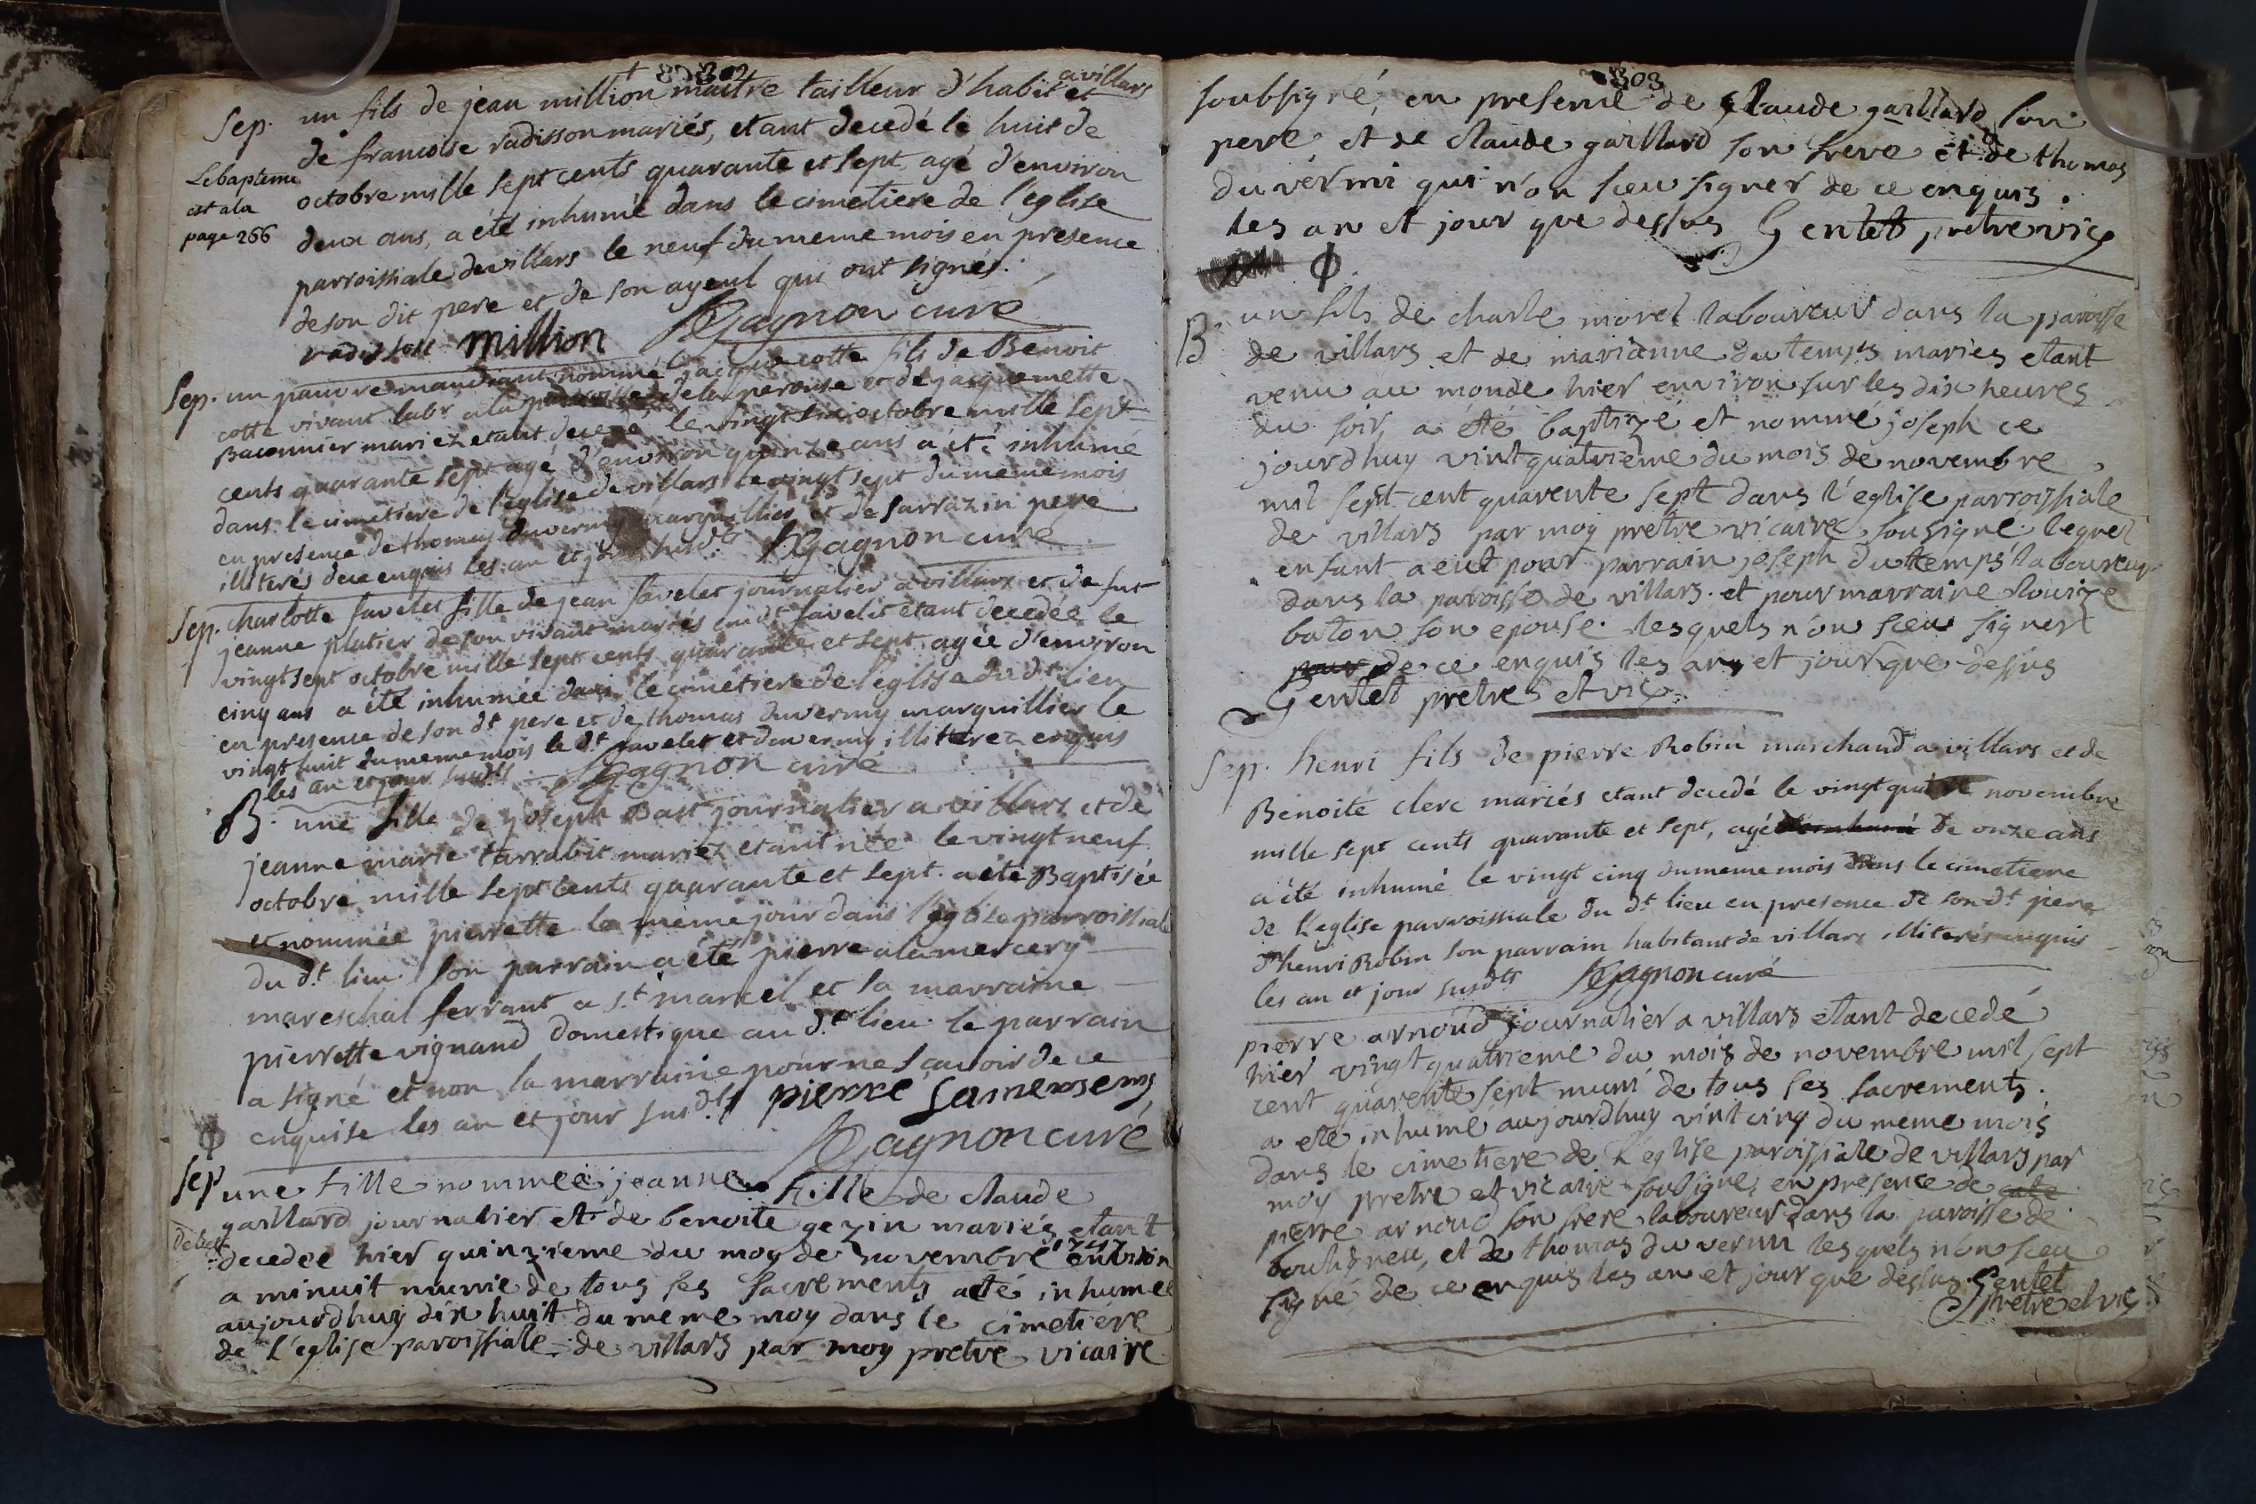 302
Sep. un fils de jean million maitre tailleur d'habit et a villars
de francoise radisson mariés, etant decedé le huit de
Le bapteme
est a la
page 266
octobre mille sept cents quarante et sept, agé d'environ
deux ans, a été inhumé dans le cimetiere de l'eglise
parroissiale de villars le neuf du meme mois en presence
de son dit pere et de son ayeul qui ont signés.
radisson million Gagnon curé
Sep. un pauvre mandiant nommé jacque cotte fils de Benoit
cotte vivant labr a la de la perouse et de jacquemette
Baconnier mariez etant decedé le vingt six octobre mille sept
cents quarante sept agé d'environ quinze ans a été inhumé
dans le cimetiere de l'eglise de villars le vingt sept du meme mois
en presence de thomas duvermy marguillier et de sarrazin pere
illiterés de ce enquis les an et jour susdts Gagnon curé
Sep. charlotte favelet fille de jean favelet journalier a villars et de fut
jeanne platier de son vivant mariés sudt favelet etant decedée le
vingt sept octobre mille sept cents quarante et sept agée d'environ
cinq ans a été inhumée dans le cimetiere de l'eglise du dt lieu
en presence de son dt pere et de thomas duvermy marguillier le
vingt huit du meme mois le dt favelet et duvermy illiterez enquis
les an et jour susdts Gagnon curé
B. une fille de joseph Bast journalier a villars et de
jeanne marie tarrabit mariez etant née le vingt neuf
octobre mille sept cents quarante et sept. a été Baptisée
et nommée pierrette le meme jour dans l'eglise parroissiale
du dt lieu son parrain a été pierre alamercery
mareschal ferrant a st marcel et la marraine
pierrette vignand domestique au dt lieu le parrain
a signé et non la marraine pour ne sçavoir de ce
enquise les an et jour susdts pierre
Gagnon curé
Sep une fille nommée jeanne fille de claude
gaillard journalier et de benoite gezin mariés etant
decedée hier quinzieme du moy de novembre 1747 environ
a minuit munie de tous ses sacrements a eté inhumée
aujourdhuy dix huit du meme moy dans le cimetiere
de l'eglise paroissiale de villars par moy pretre vicaire
303
soubsigné, en presence de claude gaillard son
pere et de claude gaillard son frere et de thomas
duvermi qui n'on sceu signer de ce enquis.
les an et jour que dessus Gentet pretre vic
B. un fils de charle morel laboureur dans la paroisse
de villars et de marianne du temps mariés etant
venu au monde hier environ sur les dix heures
du soir a été baptizé et nommé joseph ce
jourdhuy vint quatrieme du mois de novembre
mil sept cent quarente sept dans l'eglise parroissiale
de villars par moy pretre vicaire sousigné lequel
enfant a eut pour parrain joseph du temps laboureur
dans la paroisse de villars. et pour marraine louize
baton son epouse. lesquels n'on sceu signer
pour de ce enquis les an et jour que dessus
Gentet pretre et vic
Sep. henri fils de pierre Robin marchand a villars et de
Benoite clerc mariés etant decedé le vingt quatre novembre
mille sept cents quarante et sept, agé de onze ans
a été inhumé le vingt cinq du meme mois dans le cimetiere
de l'eglise parroissiale du dt lieu en presence de son dt pere
dhenri Robin son parrain habitant de villars illiterés enquis
les an et jour susdts Gagnon curé
pierre arnoud journalier a villars etant decedé
hier vingt quatrieme du mois de novembre mil sept
cent quarente sept muni de tous ses sacrements.
a eté inhumé aujourdhuy vint cinq du meme mois
dans le cimetiere de l'eglise paroissiale de villars par
moy pretre et vicaire soussigné, en presence de
pierre arnoud son frere laboureur dans la paroisse de
bouligneu, et de thomas duvermi lesquels n'on sceu
signé de ce enquis les an et jour que dessus. Gentet
pretre et vic